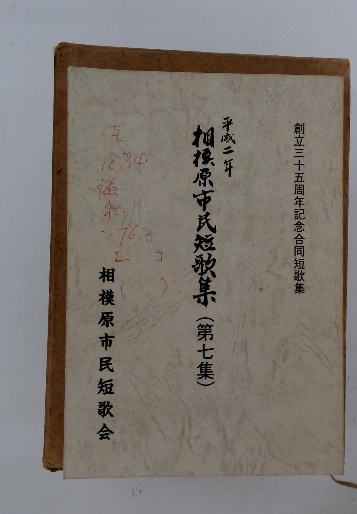 創立三十五周年記念合同短歌集
平成二年
相模原市民短歌集(第七集)
相模原市民短歌会
1834